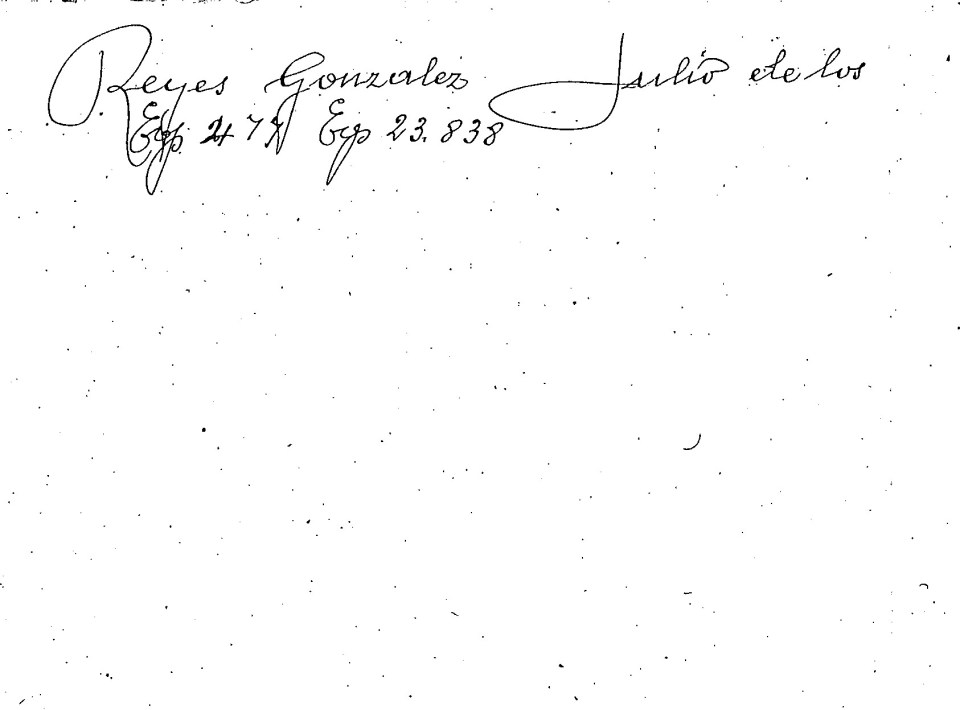 Reyes Gonzalez Julio de los
Exp 47 Exp 23.838